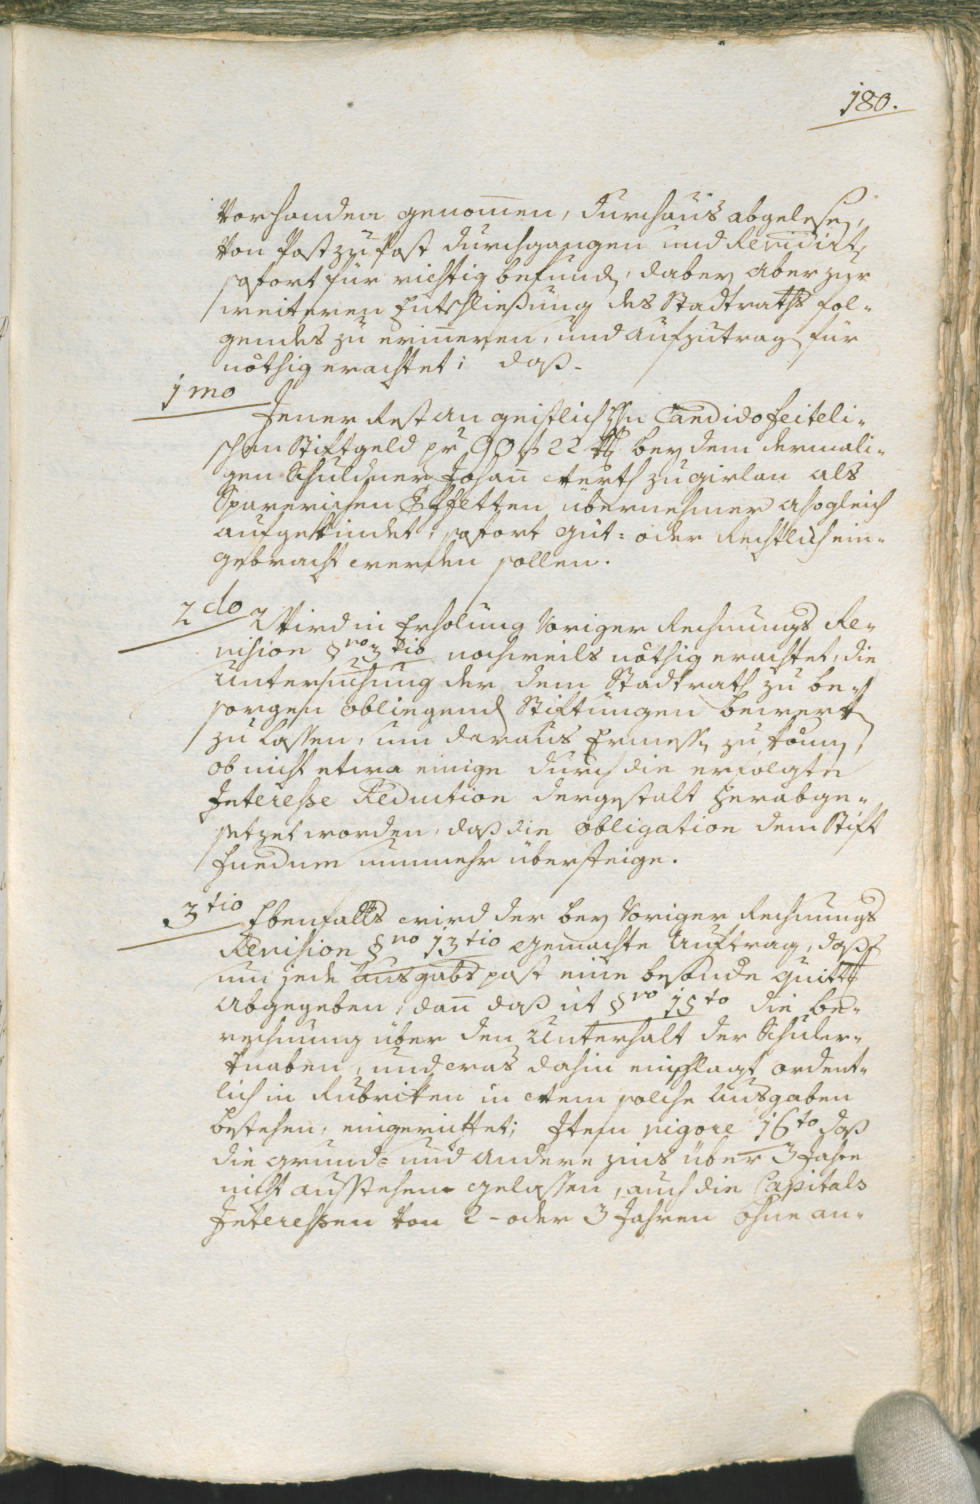 180.
Vorhanden genomen, durchaus abgelesen,
von Post zu Post durchgangen und Revidirt,
sofort für richtig befunden, dabey aber zur
weiteren Entschließung des Stadtraths fol-
gendes zu erinneren, und aufzutragen für
nöthig erachtet; daß.
1mo
Jener Rest an geistlich Candido
schen Stiftgeld pr 90 f 22 bey dem dermali-
gen Schuldner Johan zu girlan als
Effetten übernehmer alsogleich
aufgekündet, sofort güt- oder Rechtlich ein-
gebracht werden sollen.
2do Wird in Erholung Voriger Rechnungs Re-
vision §ro 3tio nöthig erachtet, die
Untersuchung der dem Stadtrath zu be-
sorgen obliegend Stiftungen
zu lassen, um daraus Ermessen zu könen,
ob nicht etwa einige durch die erfolgte
Interesse Reduction dergestalt herabge-
setzet worden, daß die obligation dem Stift
nunmehr übersteige.
3tio Ebenfalls wird der bey Voriger Rechnungs
Revision §ro 13tio gemachte Auftrag, daß
um jede Ausgabs post eine
abgegeben, dan daß ut §ro 15to die be-
rechnung über den Unterhalt der Schuler-
knaben, und was dahin einschlagt ordent-
lich in Rubriken in solche Ausgaben
bestehen, eingerichtet; Item vigore 16to daß
die grund- und andere zins über 3 Jahre
nicht ausstehen gelassen, auch die Capitals
Interessen von 2- oder 3 Jahren ohne an-